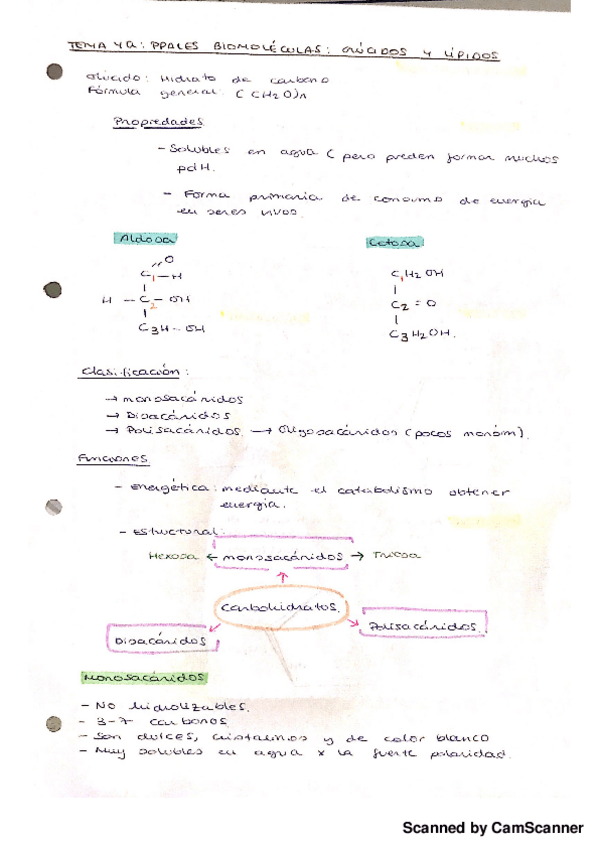 TEMA 4A: PPALES BIOMOLÉCULAS: GLÚCIDOS Y LÍPIDOS
Glúcido: Hidrato de carbono
Fórmula general: (CH2O)n
Propiedades
- Solubles en agua ( pero pueden formar muchos
pdH.
- Forma primaria de consumo de energía
en seres vivos.
Aldosa
Cetosa
O
C1 - H
H - C2 - OH
C3H - OH
C1H2OH
C2 = O
C3H2OH.
Clasificación:
→ monosacáridos
→ Disacáridos
→ Polisacáridos → Oligosacáridos (pocos monóm).
Funciones
- Energética: mediante el catabolismo obtener
energía.
- Estructural:
Hexosa ← monosacáridos → Triosa
Carbohidratos.
Disacáridos
Polisacáridos.
Monosacáridos
- No hidrolizables.
- 3-7 carbonos
- Son dulces, cristalinos y de color blanco
- Muy solubles en agua x la fuerte polaridad.
Scanned by CamScanner